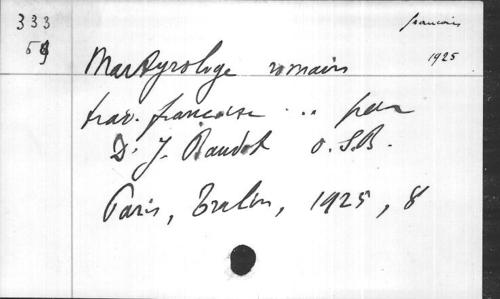 333 francais
59 1925
Martyrologe romain
trad. française .. par
D. J. Baudot O.S.B.
Paris, Tralin, 1925, 8